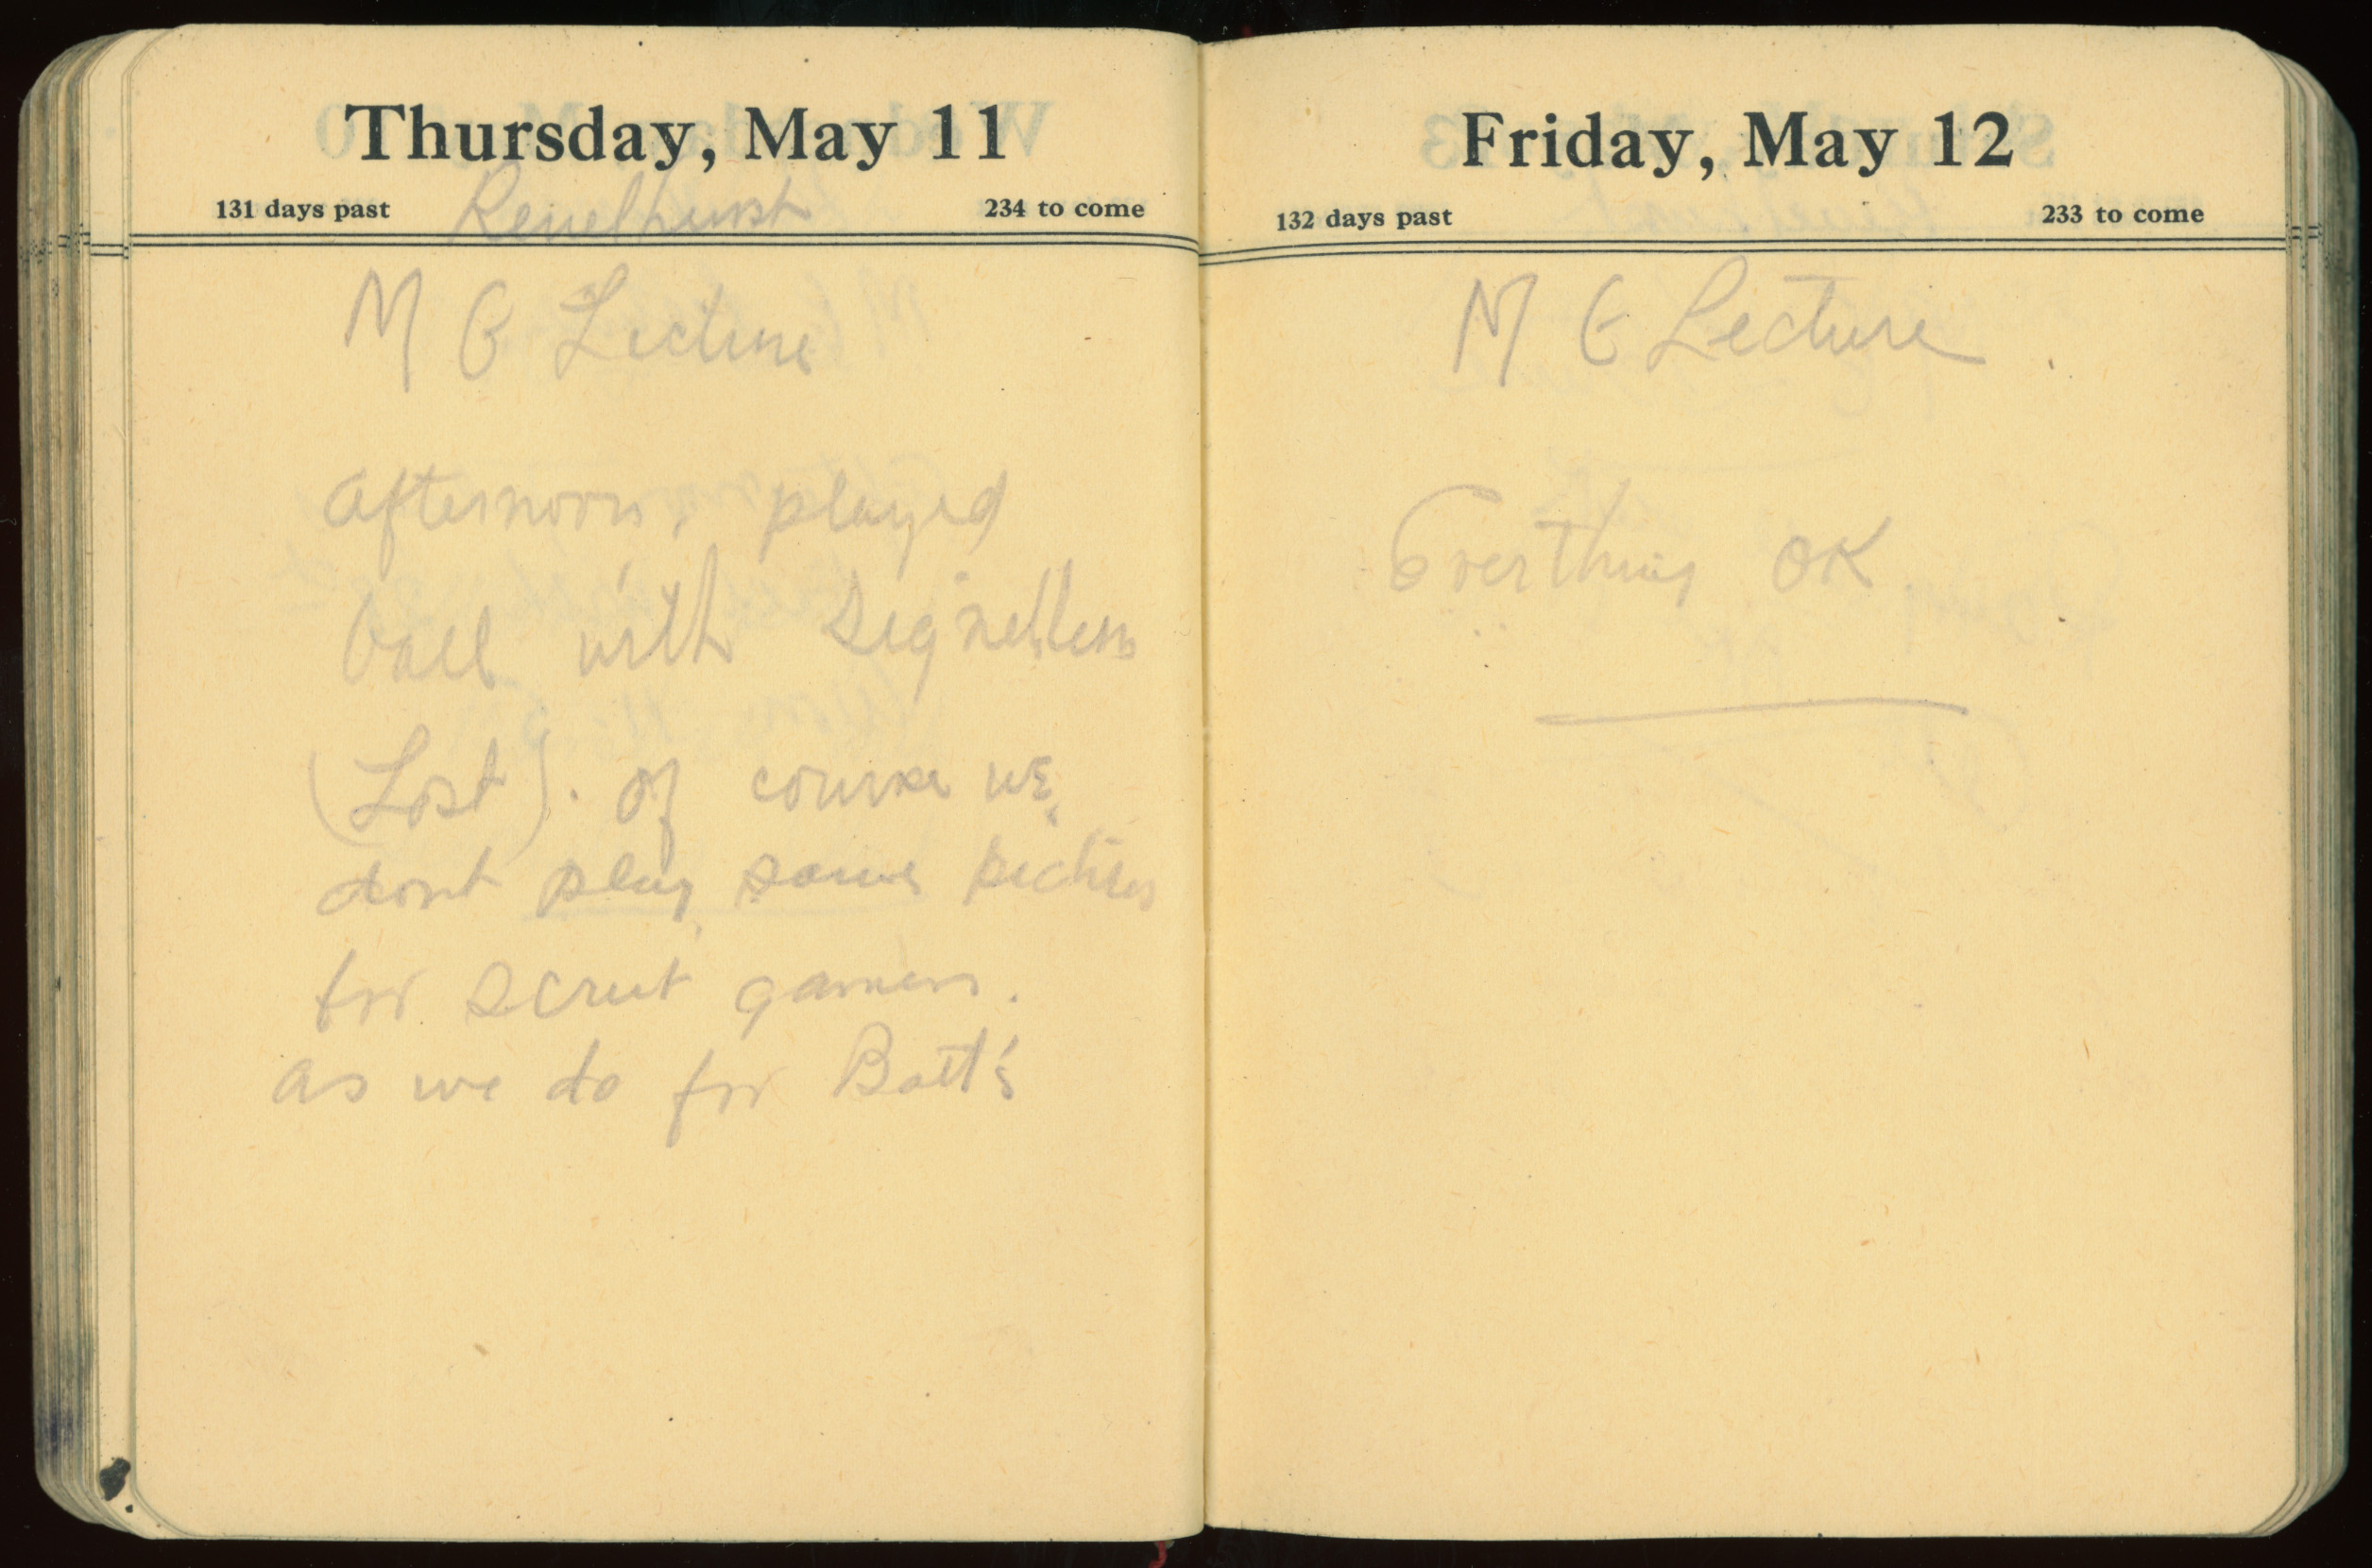 Thursday, May 11
131 days past Renelhurst 234 to come
M G Lecture
afternoon. played
ball with Signallers
(Lost). of course we
dont play same
for scrut games.
as we do for Batt's
Friday, May 12
132 days past 233 to come
M G Lecture
Everthing OK.